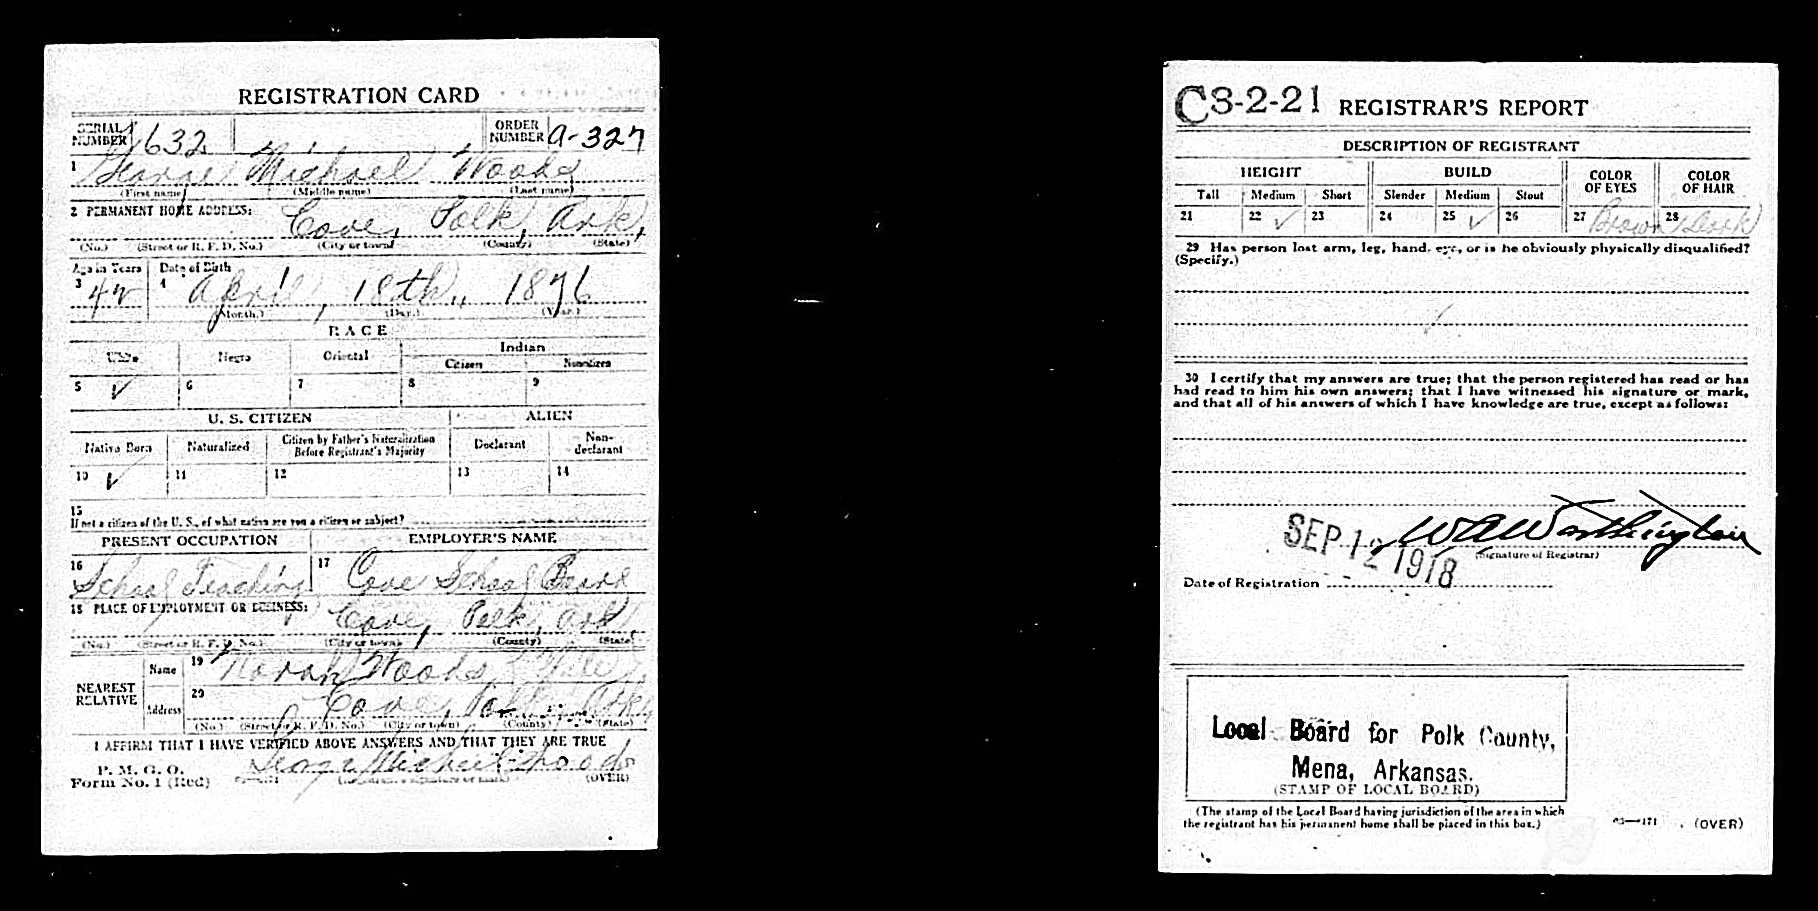 REGISTRATION CARD
SERIAL NUMBER 1632 ORDER NUMBER A-327
1 George Michael Woods
(First name) (Middle name) (Last name)
2 PERMANENT HOME ADDRESS: Cove, Polk, Ark,
(No.) (Street or R. F. D. No.) (City or town) (County) (State)
Age in Years Date of Birth
3 42 4 April, 18th, 1876
(Month.) (Day.) (Year.)
RACE
White Negro Oriental Indian
Citizen Noncitizen
5 ✓ 6 7 8 9
U. S. CITIZEN ALIEN
Native Born Naturalized Citizen by Father's Naturalization Before Registrant's Majority Declarant Non-declarant
10 ✓ 11 12 13 14
15
If not a citizen of the U. S., of what nation are you a citizen or subject?
PRESENT OCCUPATION EMPLOYER'S NAME
16 School Teaching 17 Cove School Board
18 PLACE OF EMPLOYMENT OR BUSINESS: Cove, Polk, Ark
(No.) (Street or R. F. D. No.) (City or town) (County) (State)
NEAREST RELATIVE Name 19 Norah Woods
Address 20 Cove, Polk, Ark
(No.) (Street or R. F. D. No.) (City or town) (County) (State)
I AFFIRM THAT I HAVE VERIFIED ABOVE ANSWERS AND THAT THEY ARE TRUE
P. M. G. O.
Form No. 1 (Red) George Michael Woods (OVER)
C3-2-21 REGISTRAR'S REPORT
DESCRIPTION OF REGISTRANT
HEIGHT BUILD COLOR OF EYES COLOR OF HAIR
Tall Medium Short Slender Medium Stout
21 22 ✓ 23 24 25 ✓ 26 27 Brown 28 Dark
29 Has person lost arm, leg, hand, eye, or is he obviously physically disqualified?
(Specify.)
30 I certify that my answers are true; that the person registered has read or has
had read to him his own answers; that I have witnessed his signature or mark,
and that all of his answers of which I have knowledge are true, except as follows:
W A Worthington
(Signature of Registrar)
SEP 12 1918
Date of Registration
Local Board for Polk County,
Mena, Arkansas.
(STAMP OF LOCAL BOARD)
(The stamp of the Local Board having jurisdiction of the area in which
the registrant has his permanent home shall be placed in this box.)
(OVER)